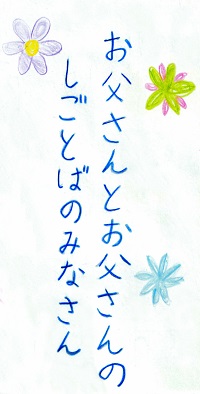 お父さんとお父さんの
しごとばのみなさん